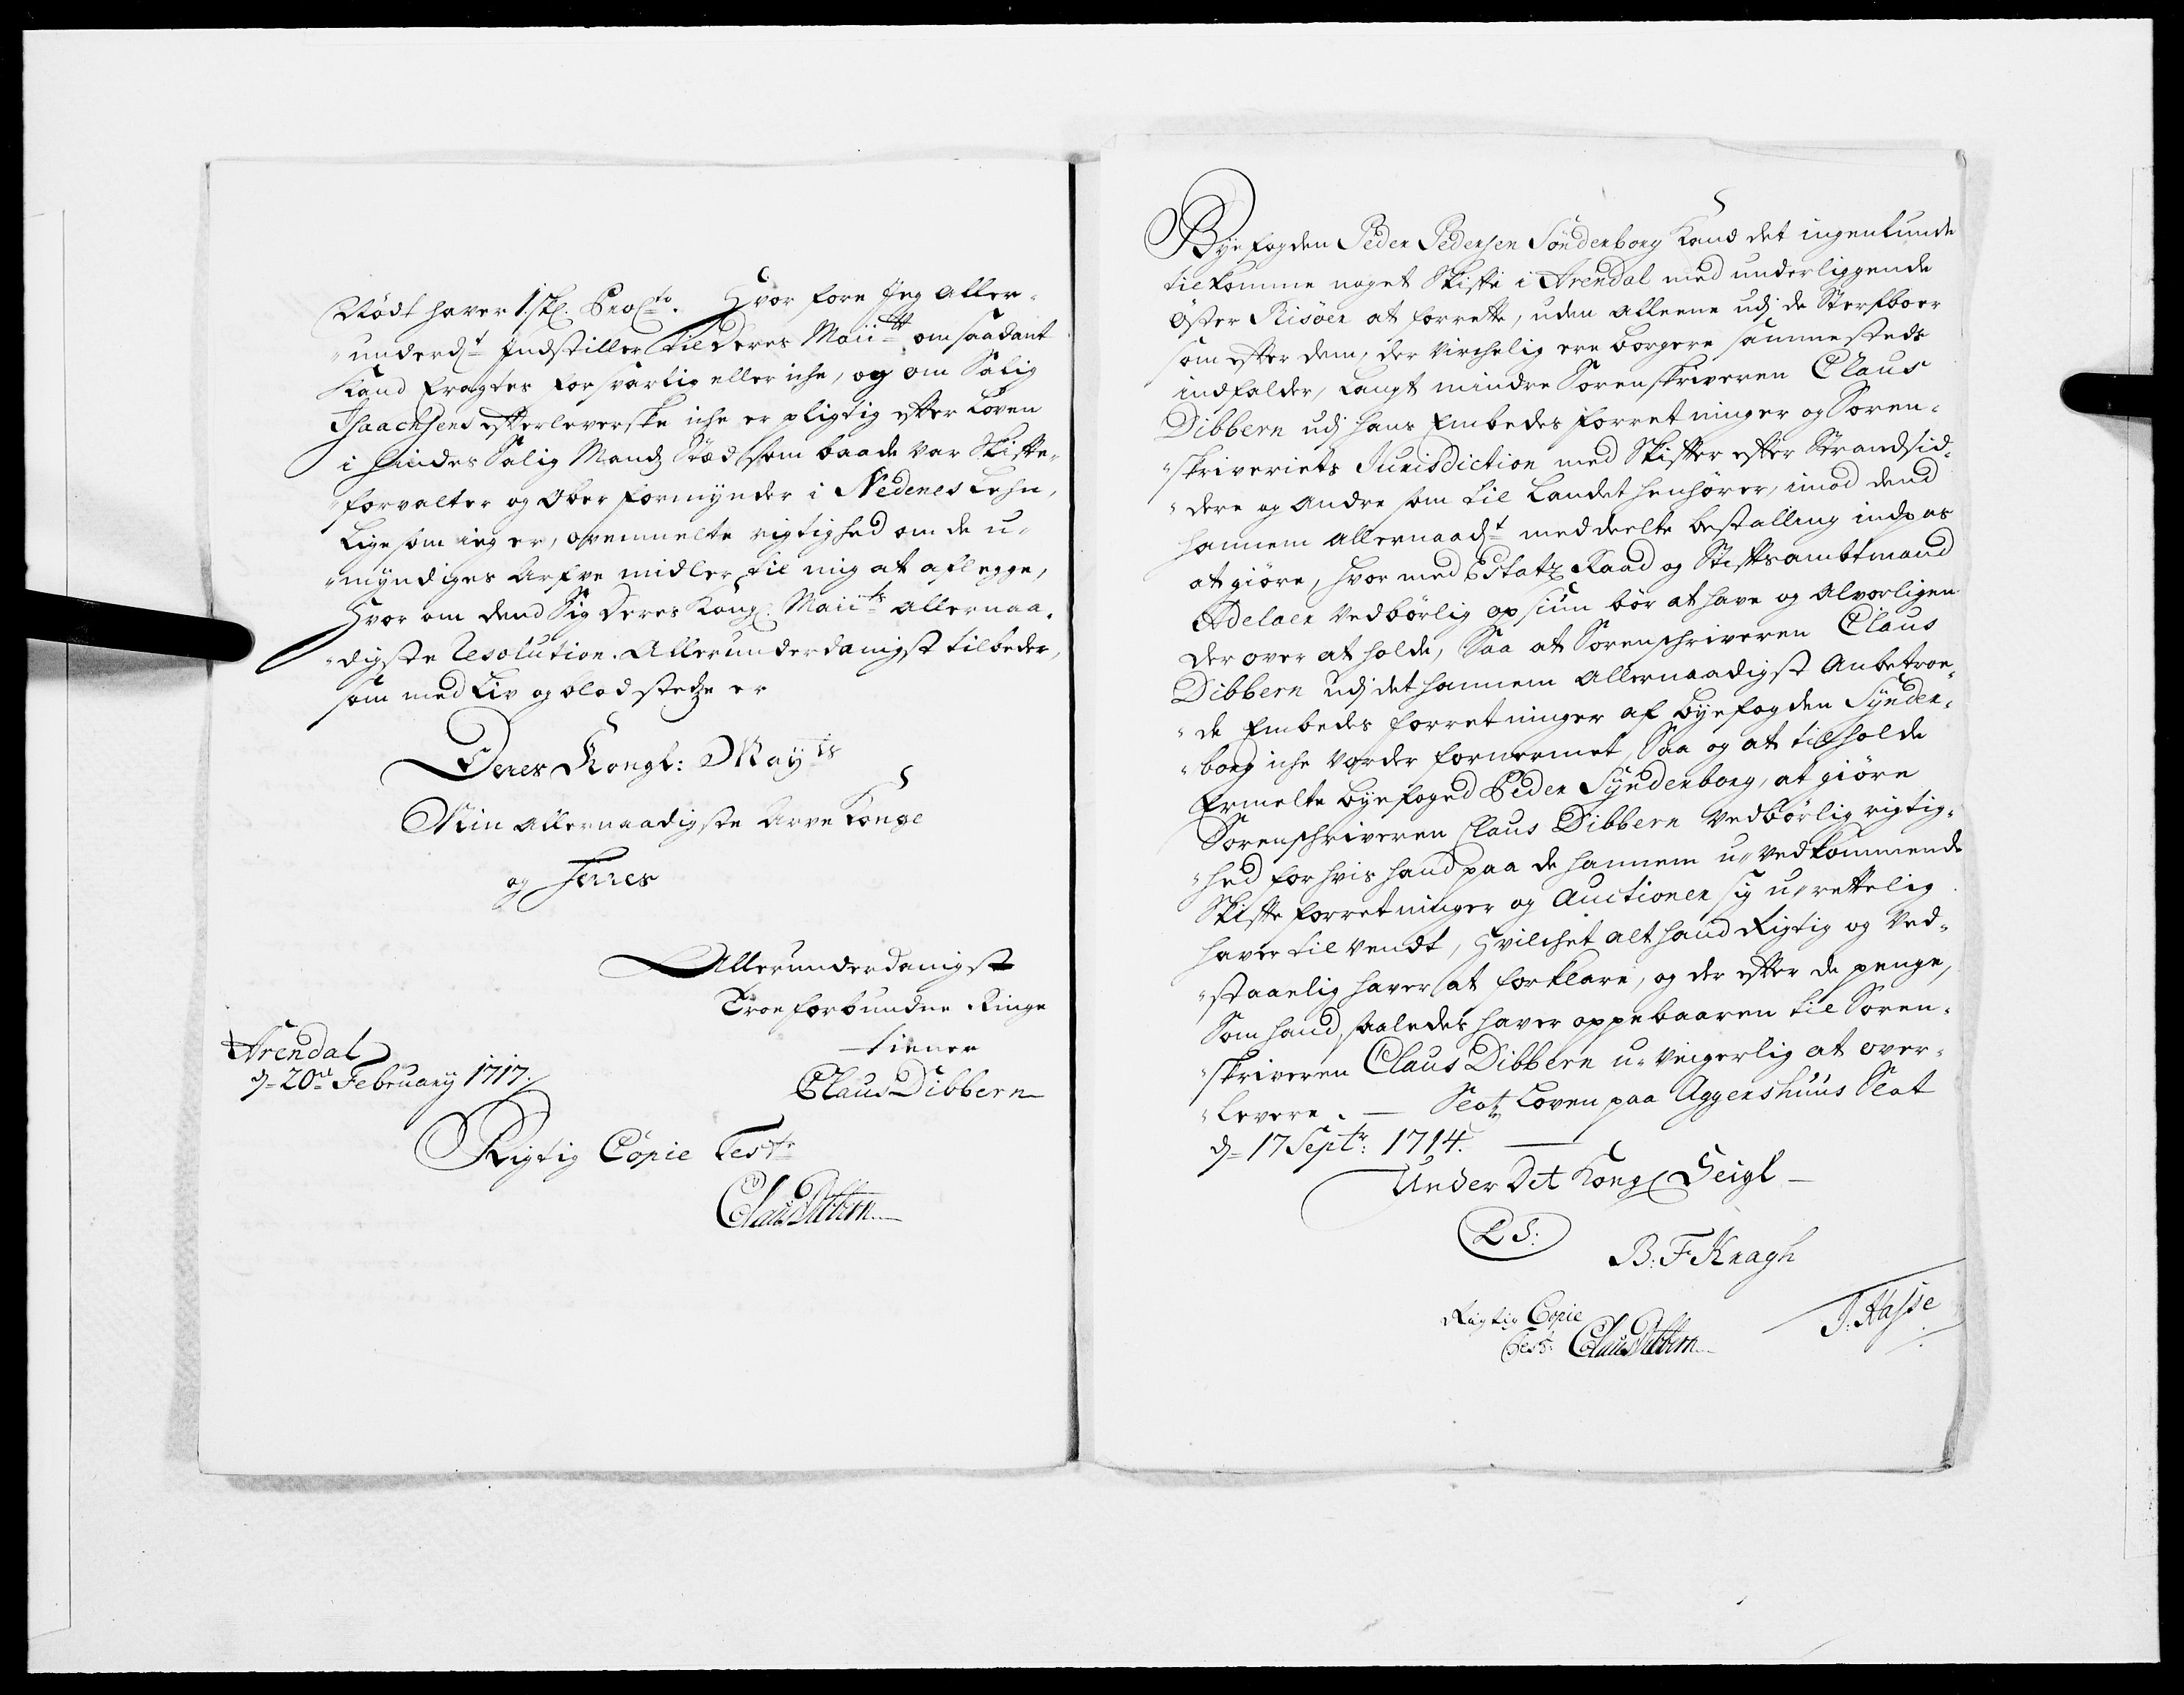 Nødt haver 1 skl. Pro Cto. Hvor fore Jeg Aller-
"underdt Indstiller til Deres Maiitt om saadant
Kand Eragtes forsvarlig eller iche, og om Salig
Isaachsens efterleverske iche er pligtig efter Loven
i hindes Salig Mands Stæd som baade var Skifte-
"forvalter og Ober formynder i Nedenes Lehn,
Lige som ieg er, ovenmelte rigtighed om de u-
"myndiges Arfve midler til mig at aflegge,
Hvor om dend Sig Deres Kongl. Maiits Allernaa-
"digste Resolution Allerunderdanigst tilbeder,
som med Liv og blod stedze er
Deres Kongl: Mayts
Min Allernaadigste Arve Konge
og Herres
Allerunderdanigst
Troe forbundne Ringe
tiener
Claus Dibbern
Arendal
d= 20de February 1717.
Rigtig Copie Teste
Claus Dibbern
Bye fogden Peder Pedersen Sönderborg kand det ingenlunde
tilkomme noget Skifte i Arendal med underliggende
Öster Risöer at forrette, uden alleene udj de Sterfboer
som efter dem, der virchelig ere borgere sammesteds
indfalder, langt mindre Sorenskriveren Claus
Dibbern udj hans Embedes forretninger og Soren-
"skriveriets Jurisdiction med Skifter efter Strandsid-
"dere og Andre som til Landet henhører, imod dend
hannem allernaadt meddeelte bestalling indpas
at giøre, hvor med Etatz Raad og Stiftsambtmand
Adelaer vedbörlig opsiun bör at have og Alvorligen
der over at holde, Saa at Sorenschriveren Claus
Dibbern udj det hannem Allernaadigst Anbetroe-
"de Embedes forretninger af byefogden Synder-
"borg iche vorder fornermet, Saa og at tilholde
Ermelte byefoged Peder Synderborg, at giöre
Sorenschriveren Claus Dibbern vedbörlig rigtig-
"hed for hvis hand paa de hannem u-vedkommende
Skifte forretninger og Auctioner sig u-rettelig
haver tilvendt, Hvilchet alt hand Rigtig og ved-
"staaelig haver at forklare, og der efter de penge,
Som hand saaledes haver oppebaaren til Soren-
"skriveren Claus Dibbern u-vegerlig at over-
"levere. — Slotz Loven paa Aggershuus Slot
d= 17 Septr: 1714.
Under Det Kongl Seigl
L S:
B: F Kragh
J: Hasse
Rigtig Copie
Test: Claus Dibbern